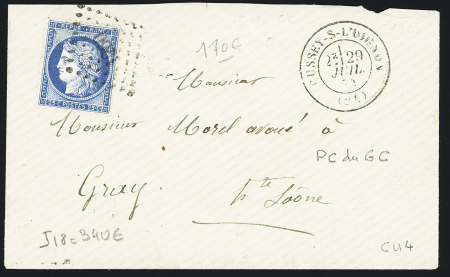 REPUB · FRANC
25 C · POSTES · 25 C
170€
CUSSEY-S-L'OIGNON
29
JUIL.
(24)
Monsieur
Monsieur Morel avoué à
PC du GC
Gray Hte Saône
J18 = 340€
CU4